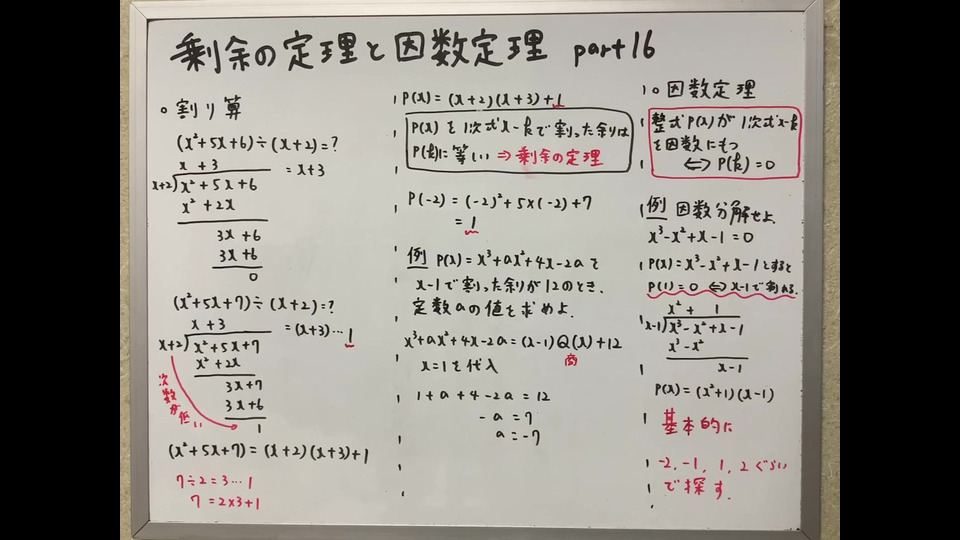 剰余の定理と因数定理 part16
○割り算
(x²+5x+6)÷(x+2)=?
x+3
=x+3
x+2 x²+5x+6
x²+2x
3x+6
3x+6
0
(x²+5x+7)÷(x+2)=?
x+3
=(x+3)…1
x+2 x²+5x+7
x²+2x
3x+7
3x+6
1
次数が低い
(x²+5x+7)=(x+2)(x+3)+1
7÷2=3…1
7=2×3+1
P(x)=(x+2)(x+3)+1
P(x)を1次式x-kで割った余りは
P(k)に等しい⇒剰余の定理
P(-2)=(-2)²+5×(-2)+7
=1
例 P(x)=x³+ax²+4x-2aを
x-1で割った余りが12のとき、
定数aの値を求めよ.
x³+ax²+4x-2a=(x-1)Q(x)+12
商
x=1を代入
1+a+4-2a=12
-a=7
a=-7
○因数定理
整式P(x)が1次式x-k
を因数にもつ
⇔P(k)=0
例 因数分解せよ.
x³-x²+x-1=0
P(x)=x³-x²+x-1とすると
P(1)=0⇔x-1で割れる.
x²+1
x-1 x³-x²+x-1
x³-x²
x-1
P(x)=(x²+1)(x-1)
基本的に
-2,-1,1,2ぐらい
で探す.